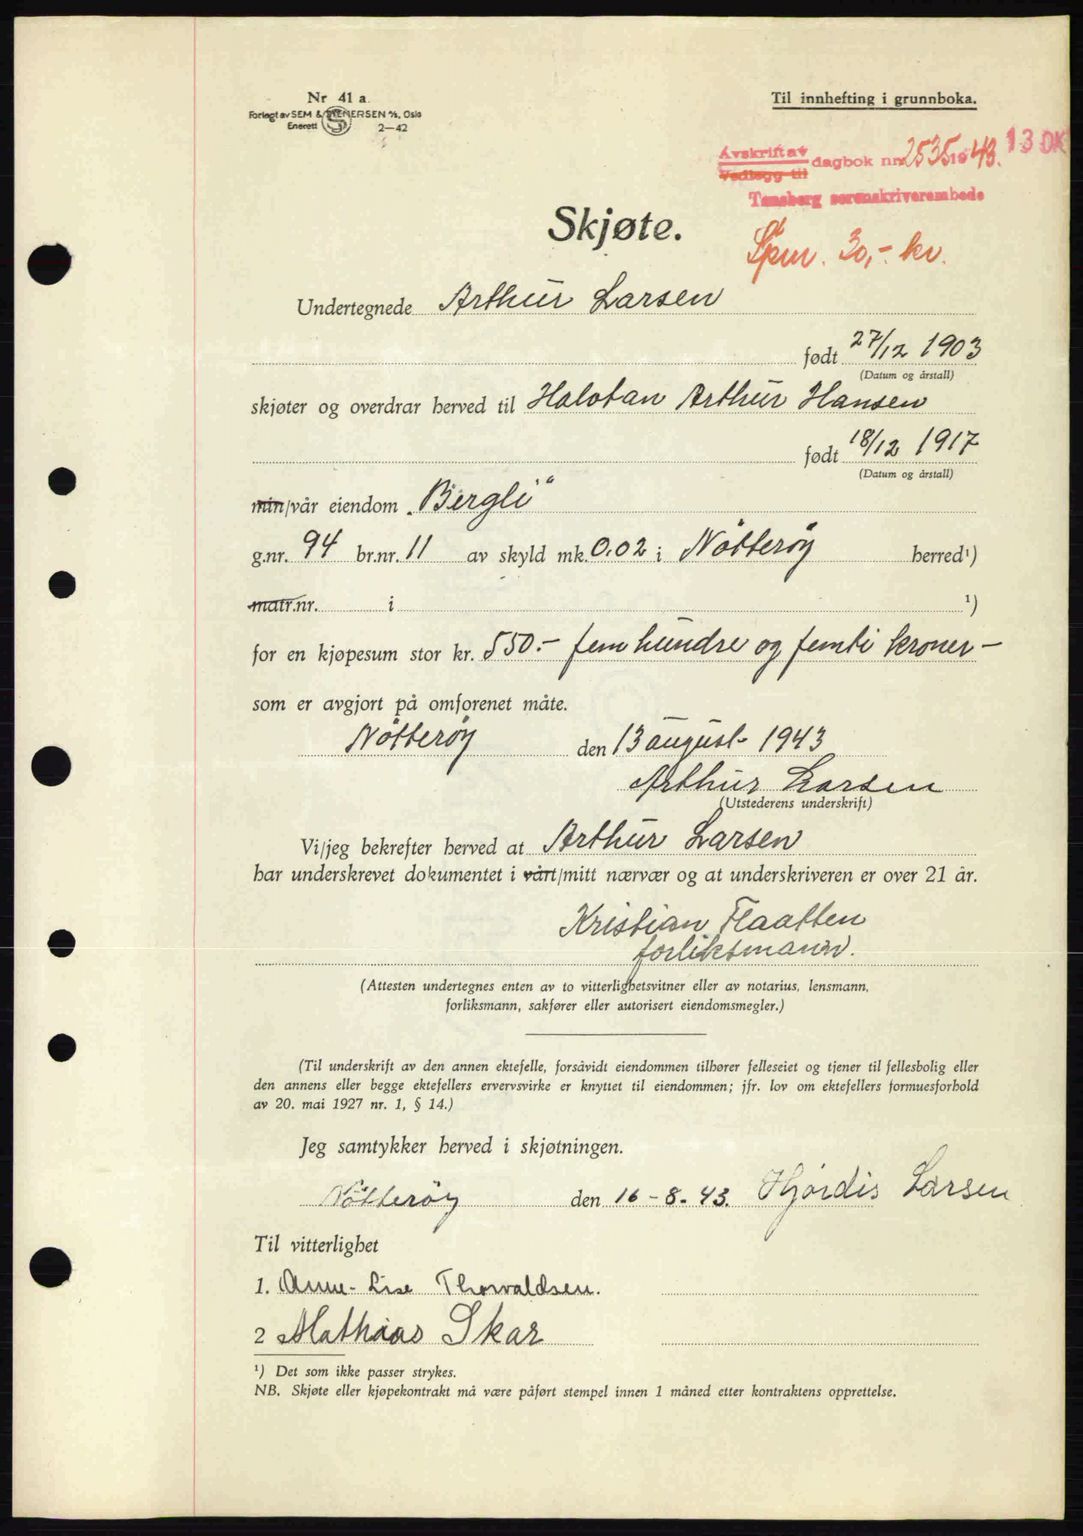 Nr 41 a
Forlagt av SEM & STENERSEN A/S, Oslo
Enerett 2—42
Til innhefting i grunnboka.
Avskrift av
Vedlegg til
dagbok nr. 2535 1943. 13 OK
Tønsberg sorenskriverembede
Skjøte.
Stpm. 30,- kr.
Undertegnede Arthur Larsen
født 27/12 1903
(Datum og årstall)
skjøter og overdrar herved til Halvtan Arthur Hansen
født 18/12 1917
(Datum og årstall)
min/vår eiendom „Bergli“
g.nr. 94 br.nr. 11 av skyld mk. 0.02 i Nötterøy herred¹)
matr.nr. i ¹)
for en kjøpesum stor kr. 550.- fem hundre og femti kroner -
som er avgjort på omforenet måte.
Nötterøy den 13 august 1943
Arthur Larsen
(Utstederens underskrift)
Vi/jeg bekrefter herved at Arthur Larsen
har underskrevet dokumentet i vårt/mitt nærvær og at underskriveren er over 21 år.
Kristian Flaatten
forliksmann.
(Attesten undertegnes enten av to vitterlighetsvitner eller av notarius, lensmann,
forliksmann, sakfører eller autorisert eiendomsmegler.)
(Til underskrift av den annen ektefelle, forsåvidt eiendommen tilhører felleseiet og tjener til fellesbolig eller
den annens eller begge ektefellers ervervsvirke er knyttet til eiendommen; jfr. lov om ektefellers formuesforhold
av 20. mai 1927 nr. 1, § 14.)
Jeg samtykker herved i skjøtningen.
Nötterøy den 16-8-43. Hjørdis Larsen
Til vitterlighet
1. Anne-Lise Thorvaldsen.
2 Mathias Skar
¹) Det som ikke passer strykes.
NB. Skjøte eller kjøpekontrakt må være påført stempel innen 1 måned etter kontraktens opprettelse.